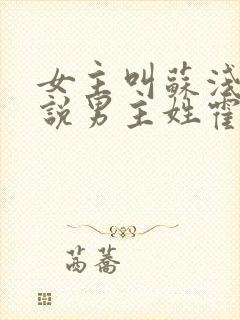 女主叫蘇淺
說男主姓霍
萵蕎